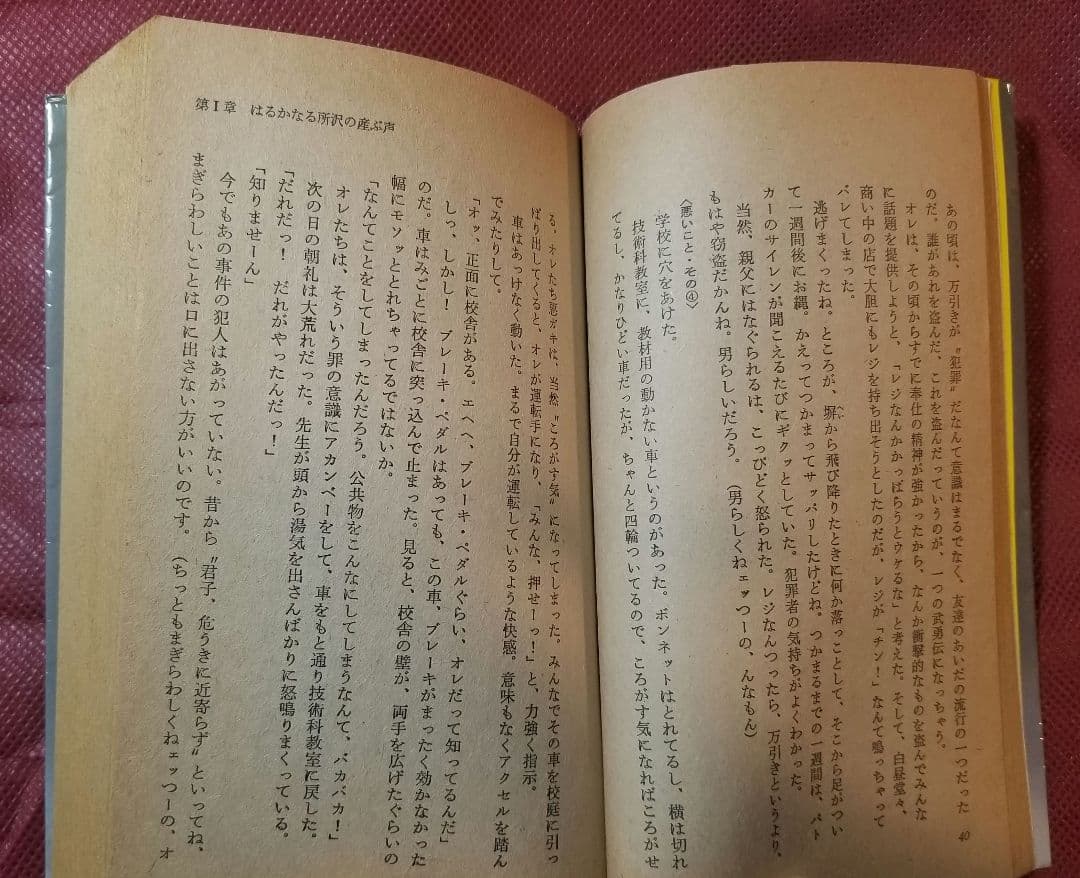 あの頃は、万引きが〝犯罪〟だなんて意識はまるでなく、友達のあいだの流行の一つだった
のだ。誰があれを盗んだ、これを盗んだっていうのが、一つの武勇伝になっちゃう。
オレは、その頃からすでに奉仕の精神が強かったから、なんか衝撃的なものを盗んでみんな
に話題を提供しようと、「レジなんかかっぱらうとウケるな」と考えた。そして、白昼堂々、
商い中の店で大胆にもレジを持ち出そうとしたのだが、レジが「チン！」なんて鳴っちゃって
バレてしまった。
逃げまくったね。ところが、塀から飛び降りたときに何か落っことして、そこから足がつい
て一週間後にお縄。かえってつかまってサッパリしたけどね。つかまるまでの一週間は、パト
カーのサイレンが聞こえるたびにギクッとしていた。犯罪者の気持ちがよくわかった。
当然、親父にはなぐられるは、こっぴどく怒られた。レジなんつったら、万引きというより、
もはや窃盗だかんね。男らしいだろう。（男らしくねェッつーの、んなもん）
〈悪いこと・その④〉
学校に穴をあけた。
技術科教室に、教材用の動かない車というのがあった。ボンネットはとれてるし、横は切れ
てるし、かなりひどい車だったが、ちゃんと四輪ついてるので、ころがす気になればころがせ
40
第Ⅰ章　はるかなる所沢の産ぶ声
る。オレたち悪ガキは、当然〝ころがす気〟になってしまった。みんなでその車を校庭に引っ
ぱり出してくると、オレが運転手になり、「みんな、押せーっ！」と、力強く指示。
車はあっけなく動いた。まるで自分が運転しているような快感。意味もなくアクセルを踏ん
でみたりして。
「オッ、正面に校舎がある。エヘヘ、ブレーキ・ペダルぐらい、オレだって知ってるんだ」
しっ、しかし！　ブレーキ・ペダルはあっても、この車、ブレーキがまったく効かなかった
のだ。車はみごとに校舎に突っ込んで止まった。見ると、校舎の壁が、両手を広げたぐらいの
幅にモソッととれちゃってるではないか。
「なんてことをしてしまったんだろう。公共物をこんなにしてしまうなんて、バカバカ！」
オレたちは、そういう罪の意識にアカンベーをして、車をもと通り技術科教室に戻した。
次の日の朝礼は大荒れだった。先生が頭から湯気を出さんばかりに怒鳴りまくっている。
「だれだっ！　だれがやったんだっ！」
「知りませーん」
今でもあの事件の犯人はあがっていない。昔から〝君子、危うきに近寄らず〟といってね、
まぎらわしいことは口に出さない方がいいのです。（ちっともまぎらわしくねェッつーの、オ